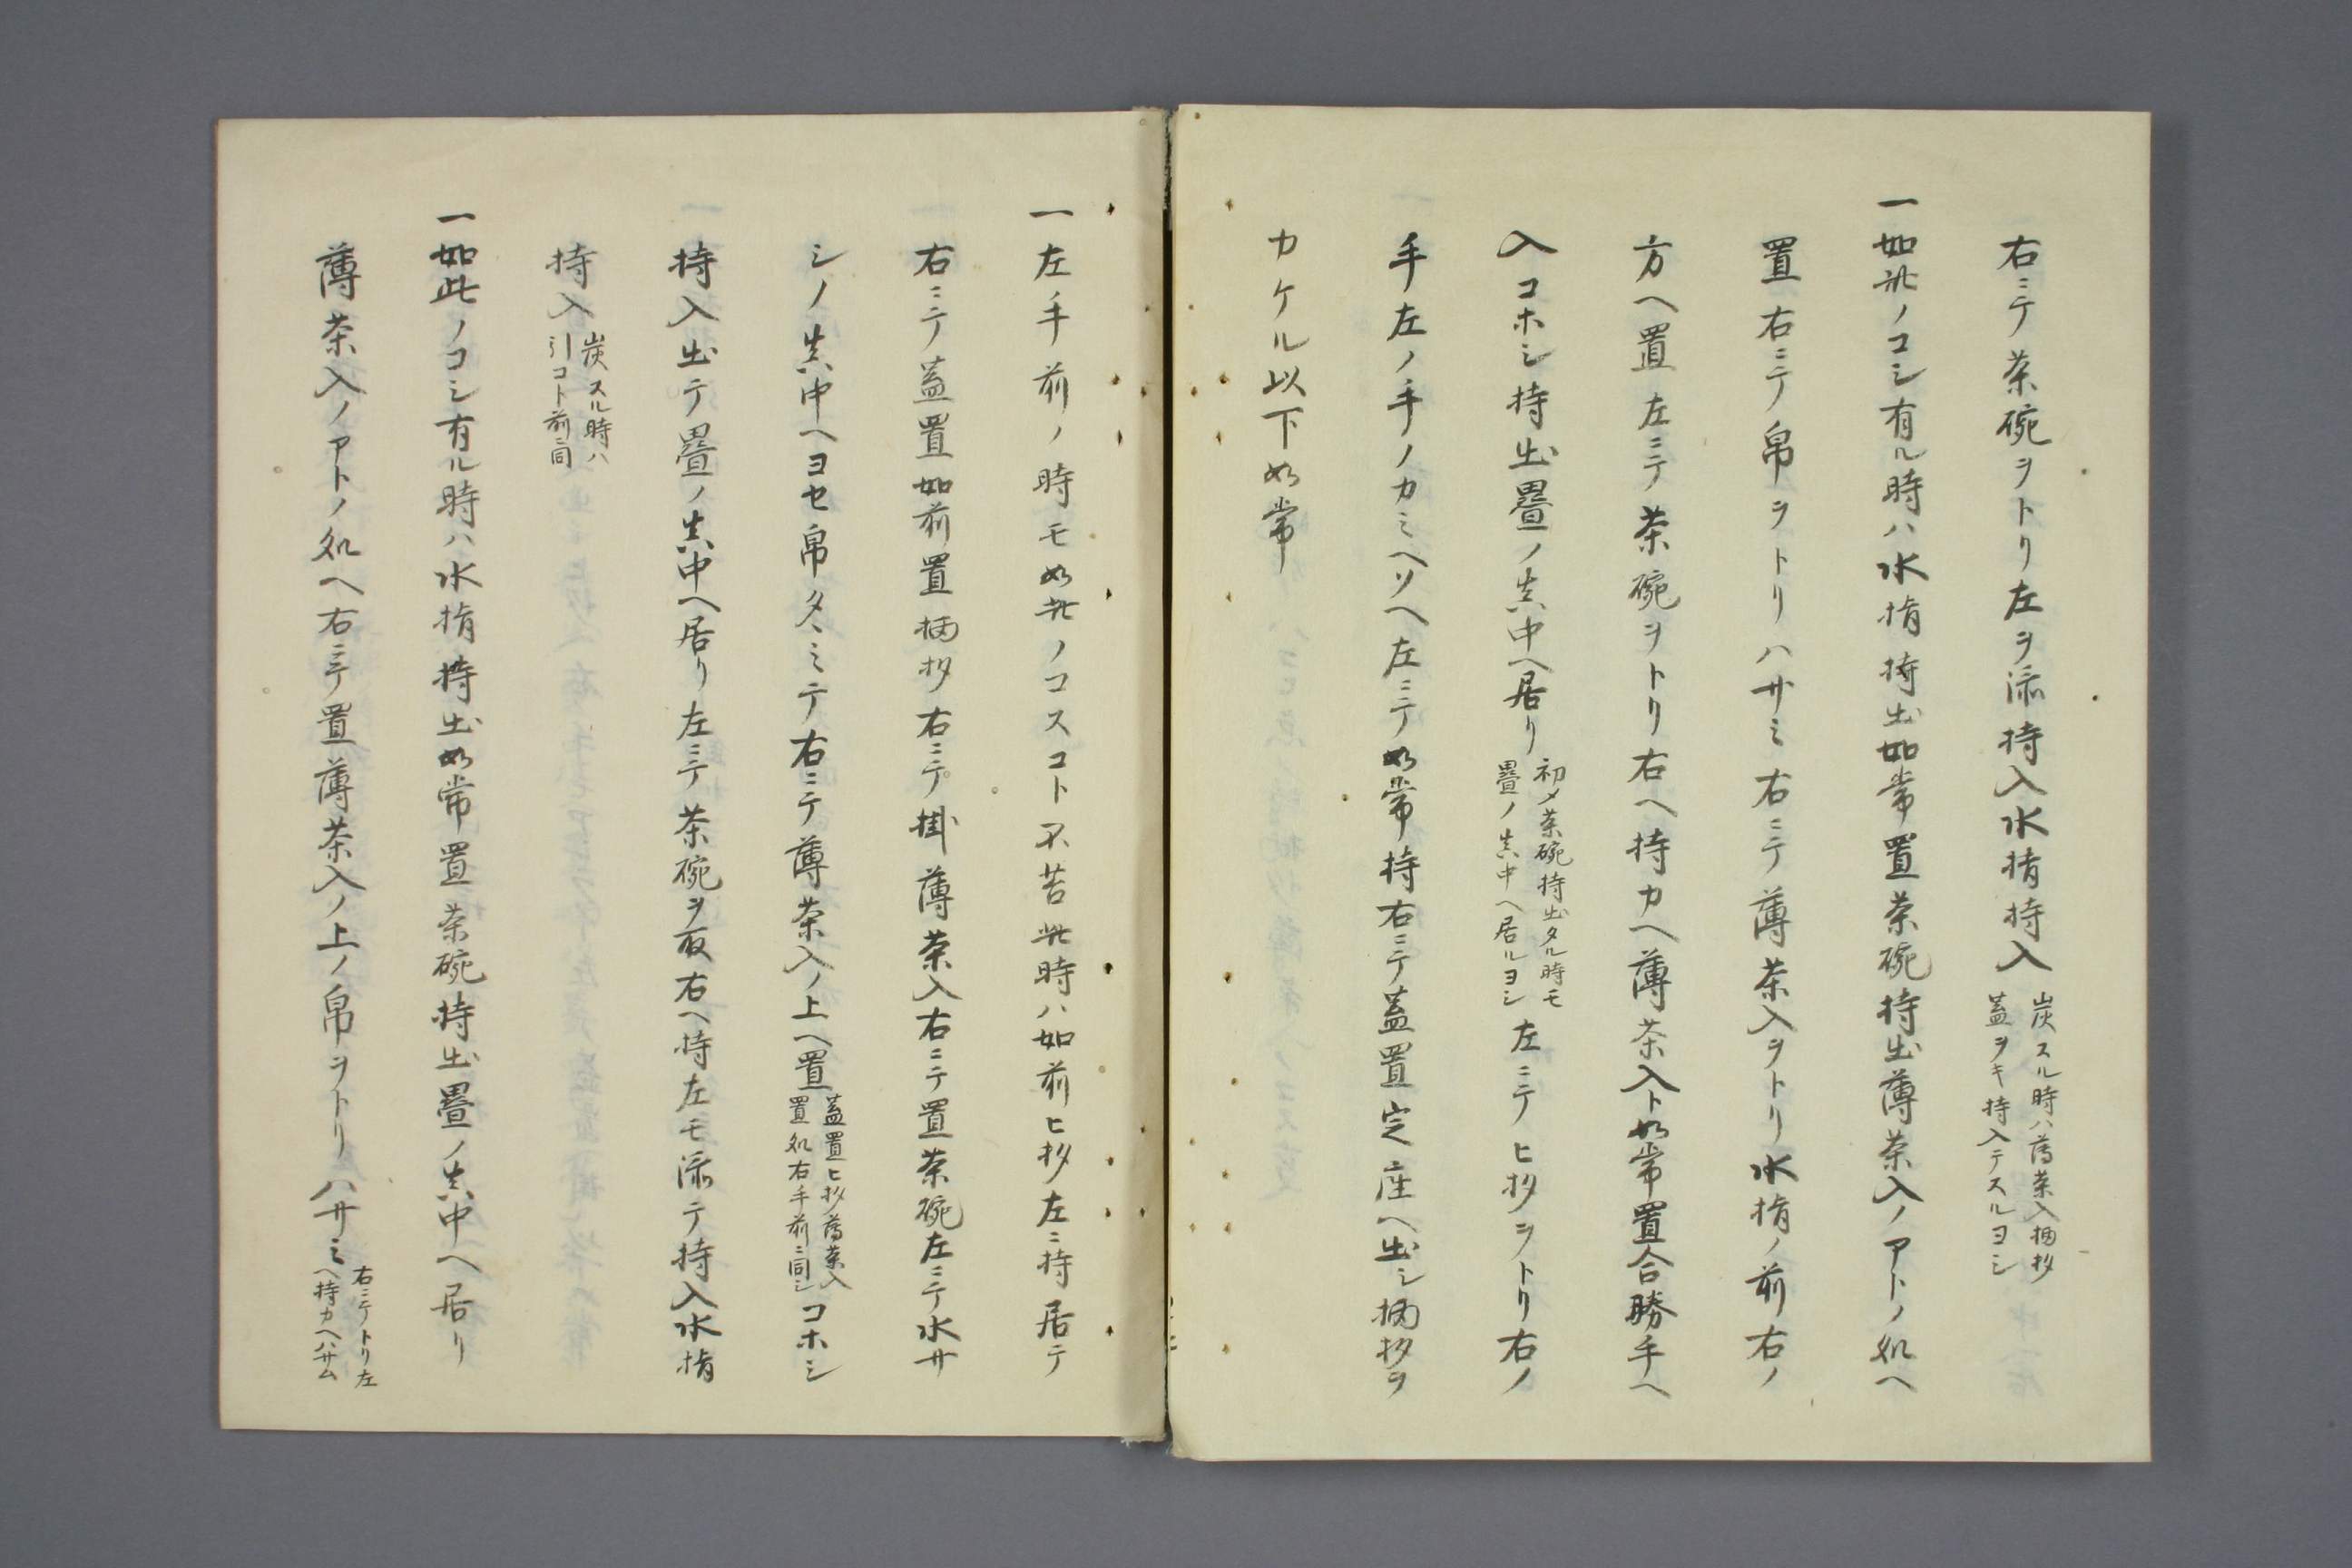 右ニテ茶碗ヲトリ左ヲ添持入水指持入
炭スル時ハ薄茶入柄杓
蓋ヲキ持入テスルヨシ
一如此ノコシ有ル時ハ水指持出如常置茶碗持出薄茶入ノアトノ処ヘ
置右ニテ帛ヲトリハサミ右ニテ薄茶入ヲトリ水指ノ前右ノ
方ヘ置左ニテ茶碗ヲトリ右ヘ持カヘ薄茶入ト如常置合勝手ヘ
入コホシ持出疊ノ真中ヘ居リ
初メ茶碗持出タル時モ
疊ノ真中ヘ居ルヨシ
左ニテヒ杓ヲトリ右ノ
手左ノ手ノカミヘソヘ左ニテ如常持右ニテ蓋置定座ヘ出シ柄杓ヲ
カケル以下如常
一左手前ノ時モ如此ノコスコト不苦此時ハ如前ヒ杓左ニ持居テ
右ニテ蓋置如前置柄杓右ニテ掛薄茶入右ニテ置茶碗左ニテ水サ
シノ真中ヘヨセ帛タヽミテ右ニテ薄茶入ノ上ヘ置
蓋置ヒ杓薄茶入
置処右手前ニ同シ
コホシ
持入出テ疊ノ真中ヘ居リ左ニテ茶碗ヲ取右ヘ持左モ添テ持入水指
持入
炭スル時ハ
引コト前ニ同
一如此ノコシ有ル時ハ水指持出如常置茶碗持出疊ノ真中ヘ居リ
薄茶入ノアトノ処ヘ右ニテ置薄茶入ノ上ノ帛ヲトリハサミ
右ニテトリ左
ヘ持カヘハサム